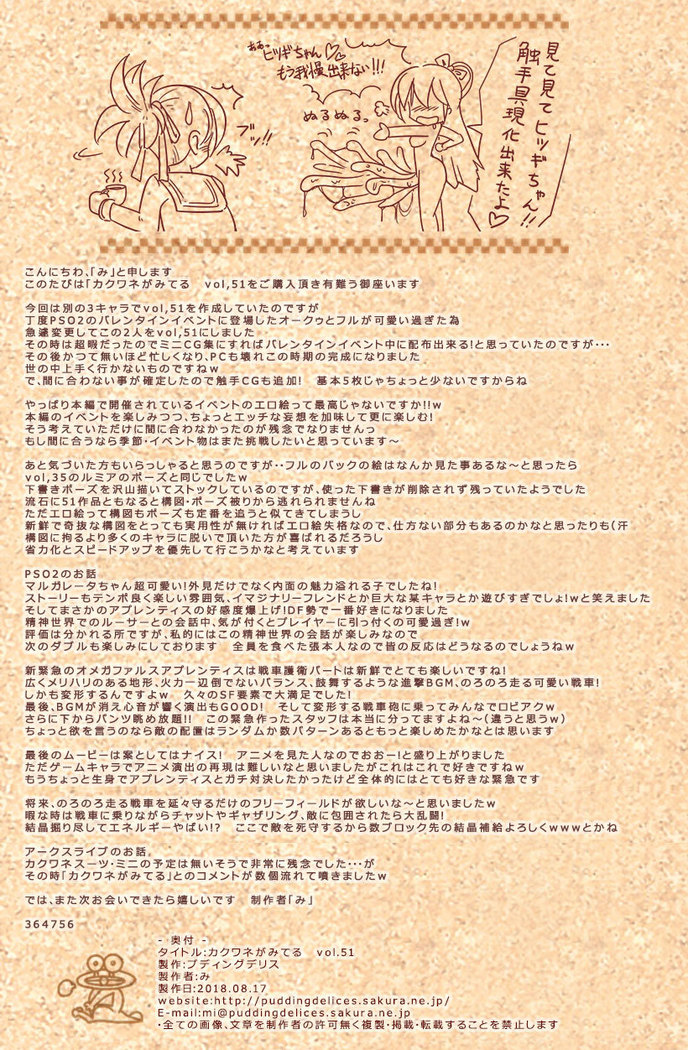 見て見てヒツギちゃん!!
触手具現化出来たよ♡
ああっ
ヒツギちゃん♡♡
もう我慢出来ない!!!
ぬるぬるっ
ブッ!!
こんにちわ、「み」と申します
このたびは「カクワネがみてる　vol,51をご購入頂き有難う御座います
今回は別の3キャラでvol,51を作成していたのですが
丁度PSO2のバレンタインイベントに登場したオークゥとフルが可愛い過ぎた為
急遽変更してこの2人をvol,51にしました
その時は超暇だったのでミニCG集にすればバレンタインイベント中に配布出来る!と思っていたのですが・・・
その後かつて無いほど忙しくなり、PCも壊れこの時期の完成になりました
世の中上手く行かないものですねw
で、間に合わない事が確定したので触手CGも追加!　基本5枚じゃちょっと少ないですからね
やっぱり本編で開催されているイベントのエロ絵って最高じゃないですか!!w
本編のイベントを楽しみつつ、ちょっとエッチな妄想を加味して更に楽しむ!
そう考えていただけに間に合わなかったのが残念でなりませんっ
もし間に合うなら季節・イベント物はまた挑戦したいと思っています～
あと気づいた方もいらっしゃると思うのですが・・フルのバックの絵はなんか見た事あるな～と思ったら
vol,35のルミアのポーズと同じでしたw
下書きポーズを沢山描いてストックしているのですが、使った下書きが削除されず残っていたようでした
流石に51作品ともなると構図・ポーズ被りから逃れられませんね
ただエロ絵って構図もポーズも定番を追うと似てきてしまうし
新鮮で奇抜な構図をとっても実用性が無ければエロ絵失格なので、仕方ない部分もあるのかなと思ったりも(汗
構図に拘るより多くのキャラに脱いで頂いた方が喜ばれるだろうし
省力化とスピードアップを優先して行こうかなと考えています
PSO2のお話
マルガレータちゃん超可愛い!外見だけでなく内面の魅力溢れる子でしたね!
ストーリーもテンポ良く楽しい雰囲気、イマジナリーフレンドとか巨大な某キャラとか遊びすぎでしょ!wと笑えました
そしてまさかのアプレンティスの好感度爆上げ!DF勢で一番好きになりました
精神世界でのルーサーとの会話中、気が付くとプレイヤーに引っ付くの可愛過ぎ!w
評価は分かれる所ですが、私的にはこの精神世界の会話が楽しみなので
次のダブルも楽しみにしております　全員を食べた張本人なので皆の反応はどうなるのでしょうねw
新緊急のオメガファルスアプレンティスは戦車護衛パートは新鮮でとても楽しいですね!
広くメリハリのある地形、火力一辺倒でないバランス、鼓舞するような進撃BGM、のろのろ走る可愛い戦車!
しかも変形するんですよw　久々のSF要素で大満足でした!
最後、BGMが消え心音が響く演出もGOOD!　そして変形する戦車砲に乗ってみんなでロビアクw
さらに下からパンツ眺め放題!!　この緊急作ったスタッフは本当に分ってますよね～(違うと思うw)
ちょっと欲を言うのなら敵の配置はランダムか数パターンあるともっと楽しめたかなとは思います
最後のムービーは案としてはナイス!　アニメを見た人なのでおおー!と盛り上がりました
ただゲームキャラでアニメ演出の再現は難しいなと思いましたがこれはこれで好きですねw
もうちょっと生身でアプレンティスとガチ対決したかったけど全体的にはとても好きな緊急です
将来、のろのろ走る戦車を延々守るだけのフリーフィールドが欲しいな～と思いましたw
暇な時は戦車に乗りながらチャットやギャザリング、敵に包囲されたら大乱闘!
結晶掘り尽してエネルギーやばい!?　ここで敵を死守するから数ブロック先の結晶補給よろしくwwwとかね
アークスライブのお話。
カクワネスーツ・ミニの予定は無いそうで非常に残念でした・・・が
その時「カクワネがみてる」とのコメントが数個流れて噴きましたw
では、また次お会いできたら嬉しいです　制作者「み」
364756
- 奥付 -
タイトル:カクワネがみてる　vol.51
製作:プディングデリス
製作者:み
製作日:2018.08.17
website:http://puddingdelices.sakura.ne.jp/
E-mail:mi@puddingdelices.sakura.ne.jp
・全ての画像、文章を制作者の許可無く複製・掲載・転載することを禁止します